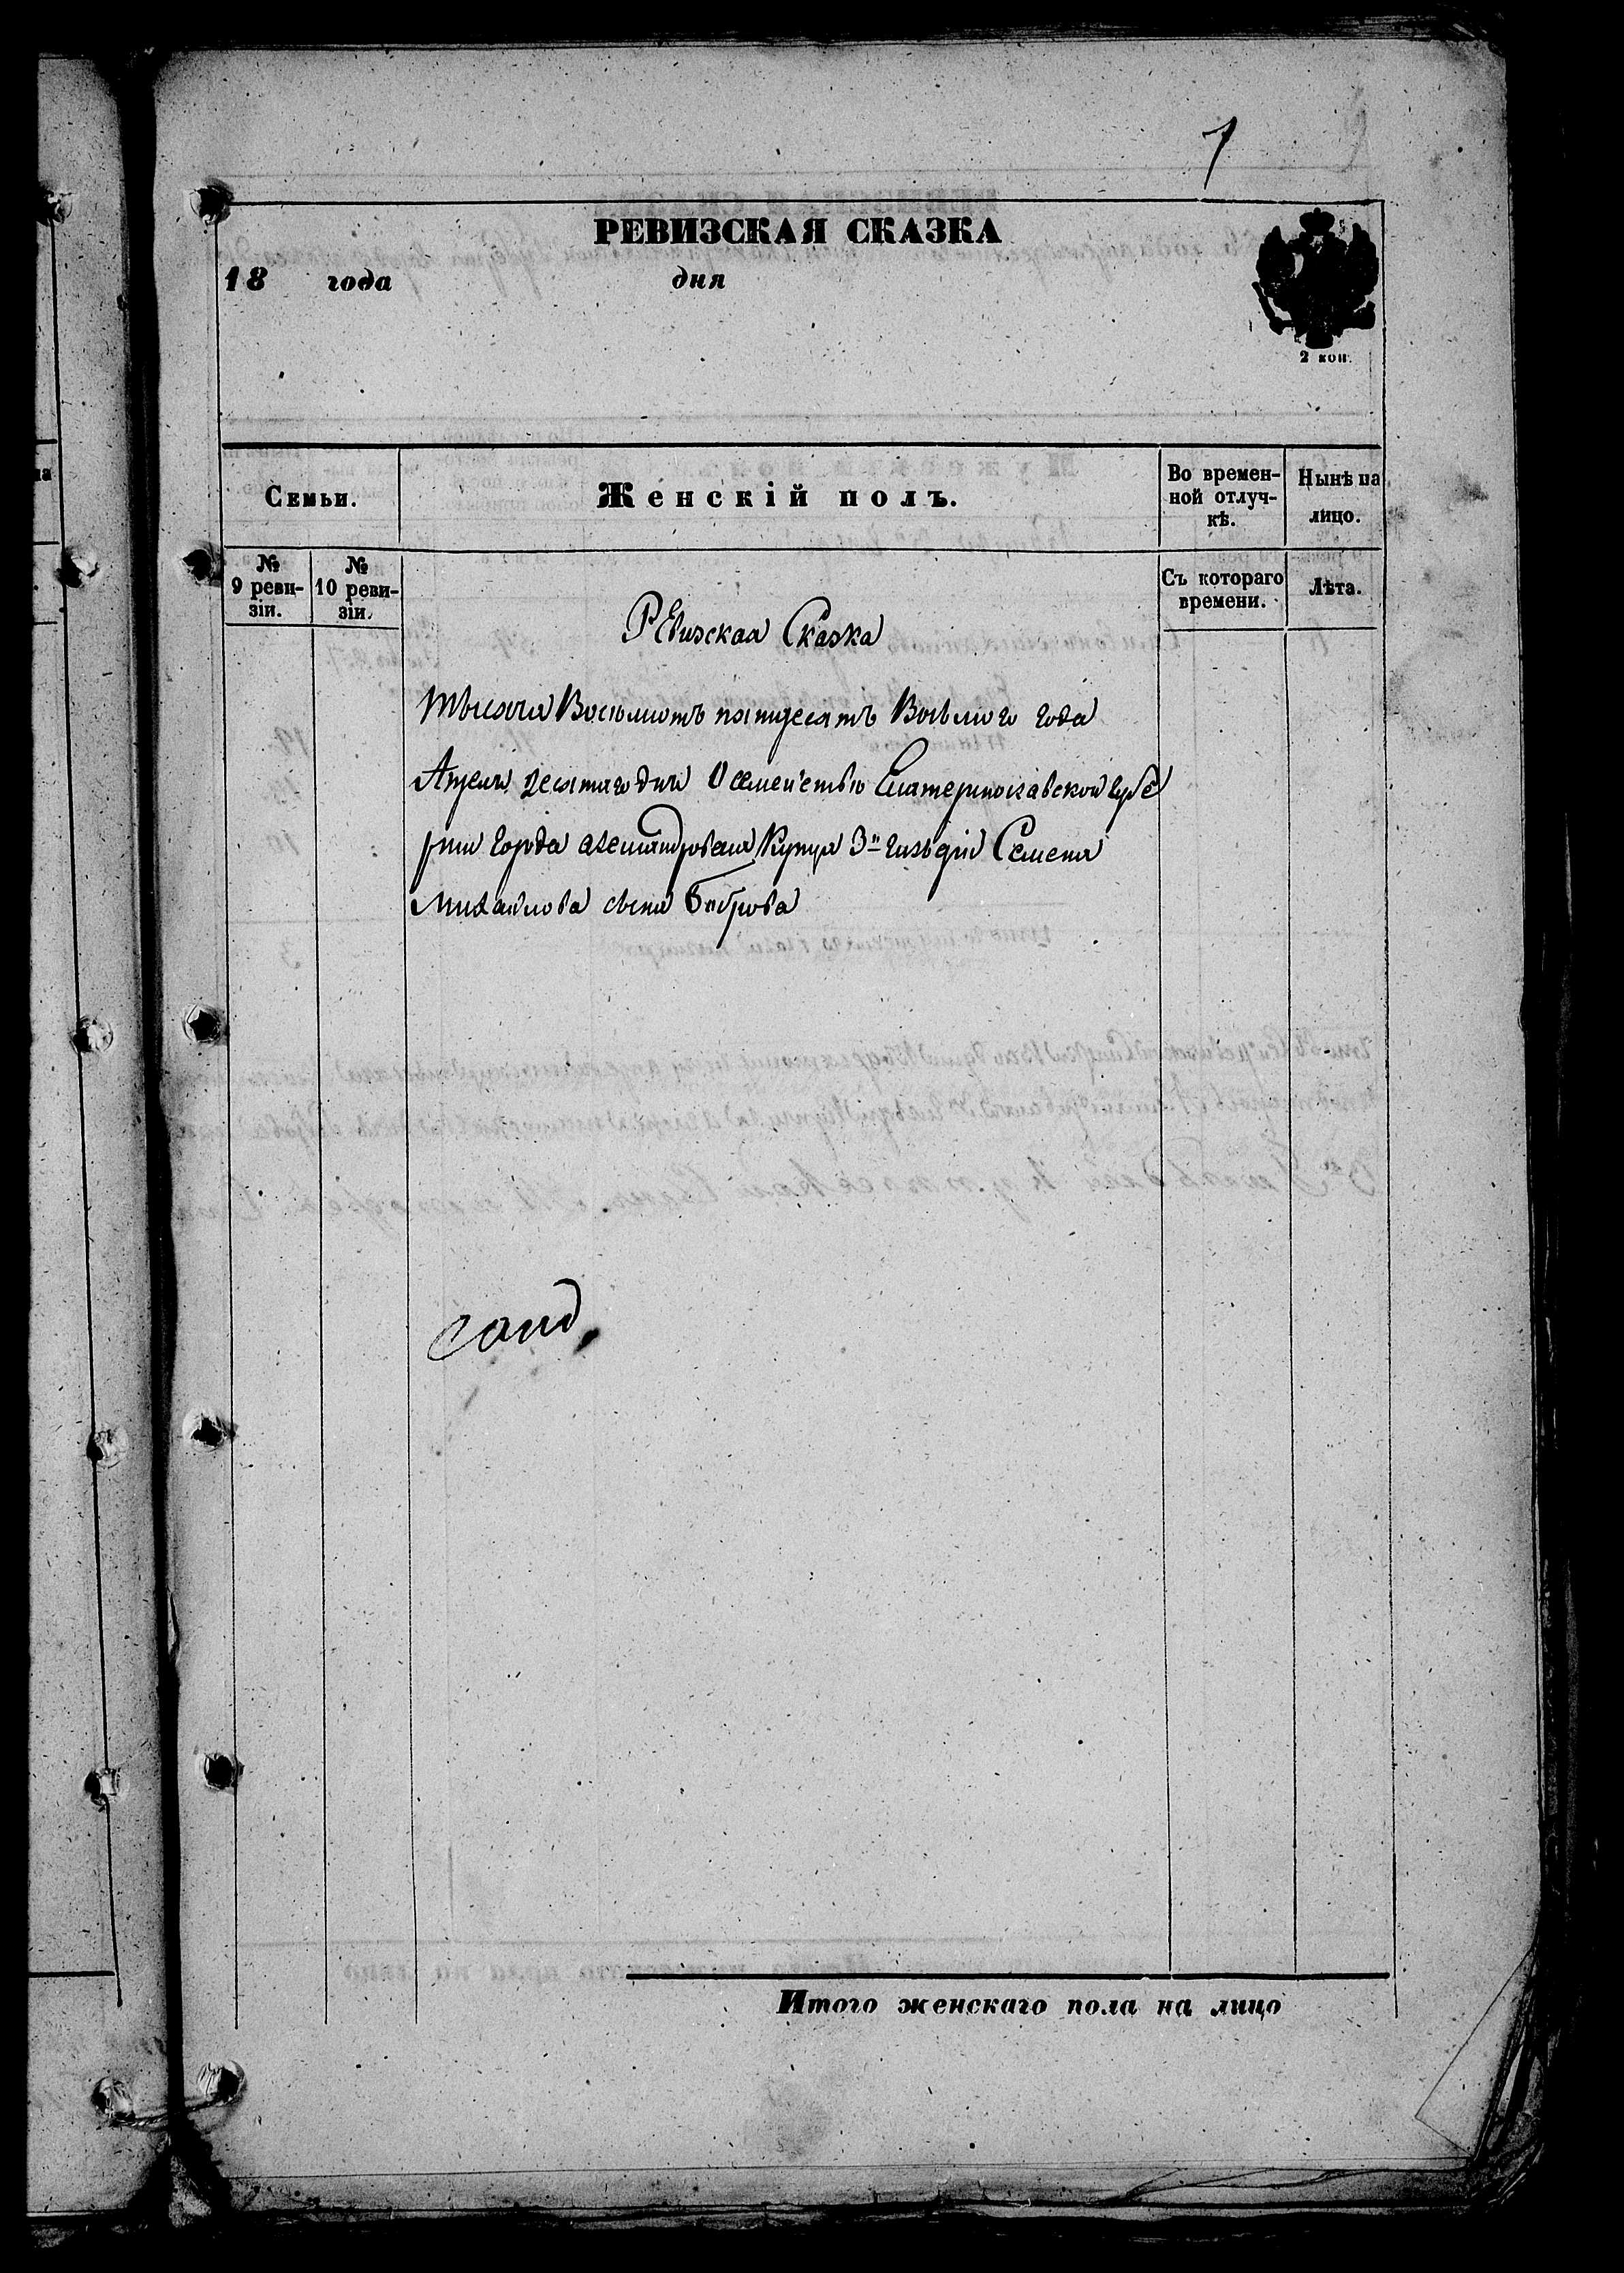 1
РЕВИЗСКАЯ СКАЗКА
18 года дня
2 коп.
Семьи.
Женскій полъ.
Во времен-
ной отлуч-
кѣ.
Нынѣ на
лицо.
№
9 реви-
зіи.
№
10 реви-
зіи.
Съ котораго
времени.
Лѣта.
Ревизская Сказка
тысяча Восьмотъ пятдесятъ Восьмого года
Апреля десятаго дня О семействѣ Екатеринославской губе
рнии города александровска Купца 3й гильдии Семена
Михаилова сына Боброва
Итого женскаго пола на лицо